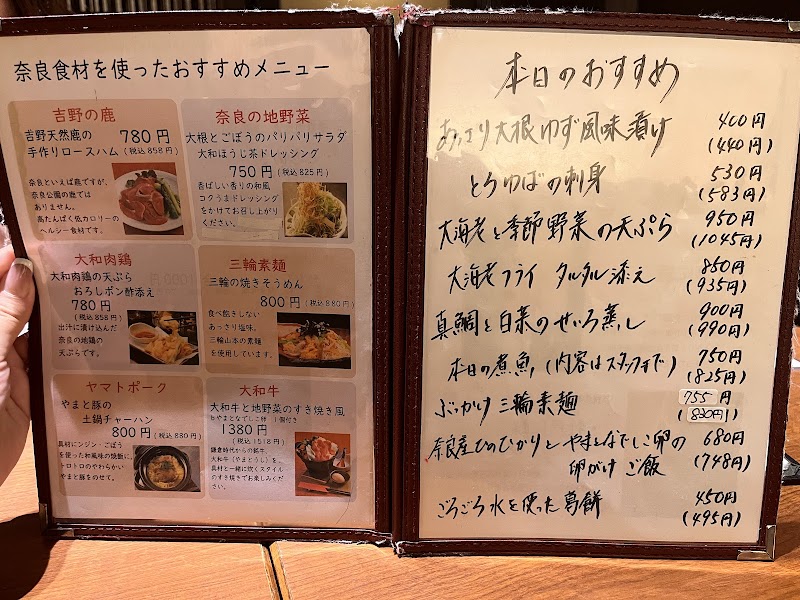 奈良食材を使ったおすすめメニュー
吉野の鹿
吉野天然鹿の 780円
手作りロースハム (税込858円)
奈良といえば鹿ですが、
奈良公園の鹿では
ありません。
高たんぱく低カロリーの
ヘルシー食材です。
奈良の地野菜
大根とごぼうのパリパリサラダ
大和ほうじ茶ドレッシング
750円 (税込825円)
香ばしい香りの和風
コクうまドレッシング
をかけてお召し上がり
ください。
大和肉鶏
大和肉鶏の天ぷら
おろしポン酢添え
780円
(税込858円)
出汁に漬け込んだ
奈良の地鶏の
天ぷらです。
三輪素麺
三輪の焼きそうめん
800円 (税込880円)
食べ飽きしない
あっさり塩味。
三輪山本の素麺
を使用しています。
ヤマトポーク
やまと豚の
土鍋チャーハン
800円 (税込880円)
具材にニンジン・ごぼう
を使った和風味の焼飯に、
トロトロのやわらかい
やまと豚をのせて。
大和牛
大和牛と地野菜のすき焼き風
やまとなでしこ卵 1個付き
1380円
(税込1518円)
鎌倉時代からの銘牛、
大和牛(やまとうし)を、
具材と一緒に炊くスタイル
のすき焼きでお楽しみくだ
さい。
本日のおすすめ
あっさり大根ゆず風味漬け 400円
(440円)
とろゆばの刺身 530円
(583円)
大海老と季節野菜の天ぷら 950円
(1045円)
大海老フライ タルタル添え 850円
(935円)
真鯛と白菜のせいろ蒸し 900円
(990円)
本日の煮魚(内容はスタッフまで) 750円
(825円)
ぶっかけ三輪素麺 755円
(830円)
奈良産ひのひかりとやまとなでしこ卵の 680円
卵がけご飯 (748円)
ごろごろ水を使った葛餅 450円
(495円)